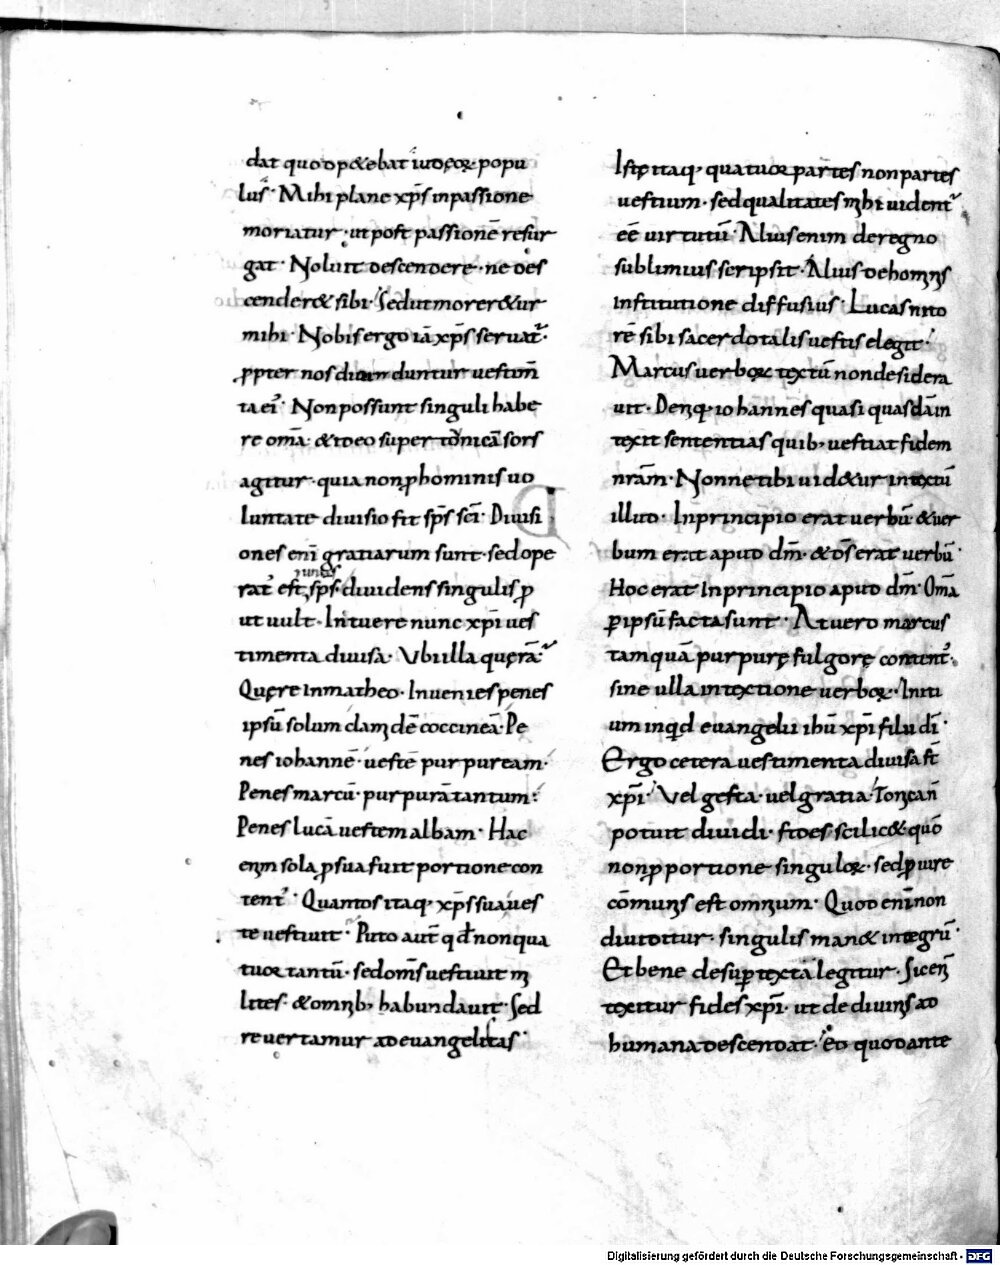 dat quod p&ebat iudęoꝝ popu
lus · Mihi plane xp̄s in passione
moriatur · ut post passionē resur
gat · Noluit descendere · ne des
cender& sibi · Sed ut morer&ur
mihi · Nobis ergo iā xp̄s seruat᷑ ·
ꝓpter nos diuiduntur uestim̄
ta ei᷒ · Non possunt singuli habe
re om̄a · & ideo super tonicā sors
agitur · quia non ꝓ hominis uo
luntate diuisio fit sp̄s sc̄i · Diuisi
ones eni̅ gratiarum sunt · sed ope
rat᷑ est sp̄s diuidens singulis ꝓ
ut uult · Intuere nunc xp̄i ues
timenta diuisa · Ubi illa quęrā᷑
Quęre in matheo · Inuenies penes
ipsū solum clamidē coccineā · Pe
nes iohannē · uestē purpuream ·
Penes marcū · purpurā tantum ·
Penes lucā uestem albam · Hac
enim sola ꝓ sua fuit portione con
tent᷒ · Quantos itaq· xp̄s sua ues
te uestiuit · Puto aut̄ qd̄ non qua
tuor tantū · sed om̄s uestiuit mi
lites · & omnib· habundauit · Sed
reuertamur ad euangelistas ·
Istę itaq· quatuor partes non partes
uestium · sed qualitates mihi uident᷑
eē uirtutū · Alius enim de regno
sublimius scripsit · Alius de hominis
institutione diffusius · Lucas nito
rē sibi sacerdotalis uestis elegit ·
Marcus uerboꝝ textū non desidera
uit · Deniq· iohannes quasi quasdā in
texit sententias quib· uestiat fidem
nr̄am · Nonne tibi uid&ur intextū
illud · In principio erat uerbū & uer
bum erat apud dm̄ · & ds̄ erat uerbū ·
Hoc erat In principio apud dm̄ · Om̄a
ꝑ ipsū facta sunt · At uero marcus
tamquā purpurę fulgorę content᷒ ·
sine ulla intextione uerboꝝ · Initi
um inqd euangelii ihū xp̄i filii dī ·
Ergo cetera uestimenta diuisa st̄
xp̄i · Vel gesta · uel gratia · Tonicā n̄
potuit diuidi · fides scilic& · quō
non ꝓ portione singuloꝝ · sed ꝓ iure
cōmunis est omnium · Quod eni̅ non
diuiditur · singulis man& integrū ·
Et bene desuꝑ textā legitur · Sic eni̅
texitur fides xp̄i · ut de diuinis ad
humana descendat · Eo quod ante